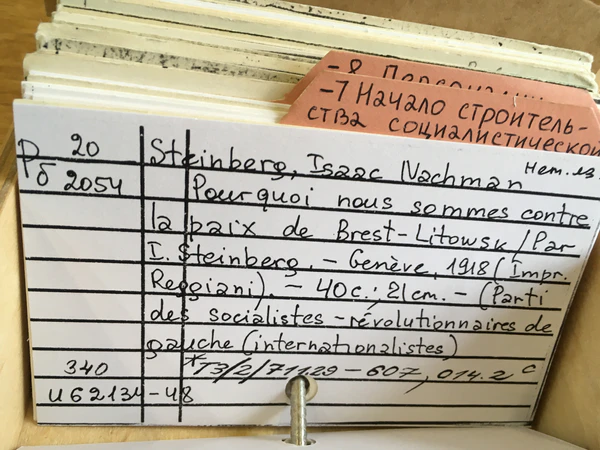 -8 Персонали
-7 Начало строитель-
ства социалистической
20
Рб 2054
Steinberg, Isaac Nachman
Нем. из.
Pourquoi nous sommes contre
la paix de Brest-Litowsk / Par
I. Steinberg. – Genève, 1918 (Impr.
Reggiani). – 40 c.; 21 cm. – (Parti
des socialistes-révolutionnaires de
gauche (internationalistes)
340
*T3/2/71129–607, 014.2 c
и 62134-48